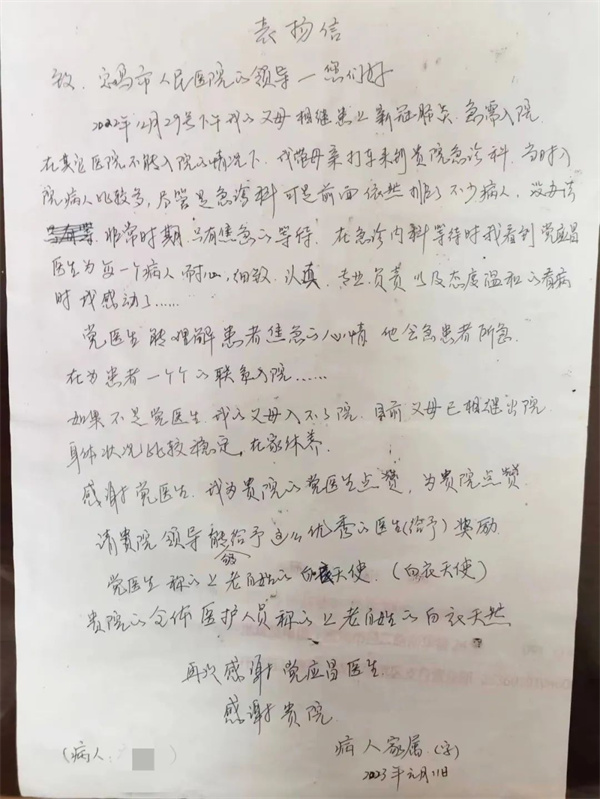 表扬信
致：宝鸡市人民医院的领导一您们好
2022年12月29号下午我的父母相继患上新冠肺炎．急需入院．
在其它医院不能入院的情况下．我带母亲打车来到贵院急诊科．当时入
院病人比较多，尽管是急诊科可是前面依然排了不少病人，没办法
非常时期．只有焦急的等待．在急诊内科等待时我看到党应昌
医生为每一个病人耐心，细致．认真．专业．负责以及态度温和的看病
时我感动了……
党医生能理解患者焦急的心情 他会急患者所急．
在为患者一个个的联系入院……
如果不是党医生．我的父母入不了院．目前父母已相继出院．
身体状况比较稳定，在家休养．
感谢党医生．我为贵院的党医生点赞，为贵院点赞．
请贵院领导能够给予这么优秀的医生(给予)奖励．
党医生称的上老百姓的白衣天使．（白衣天使）
贵院的全体医护人员称的上老百姓的白衣天然
再次感谢党应昌医生
感谢贵院．
（病人： ）
病人家属．(字)
2023年元月11日